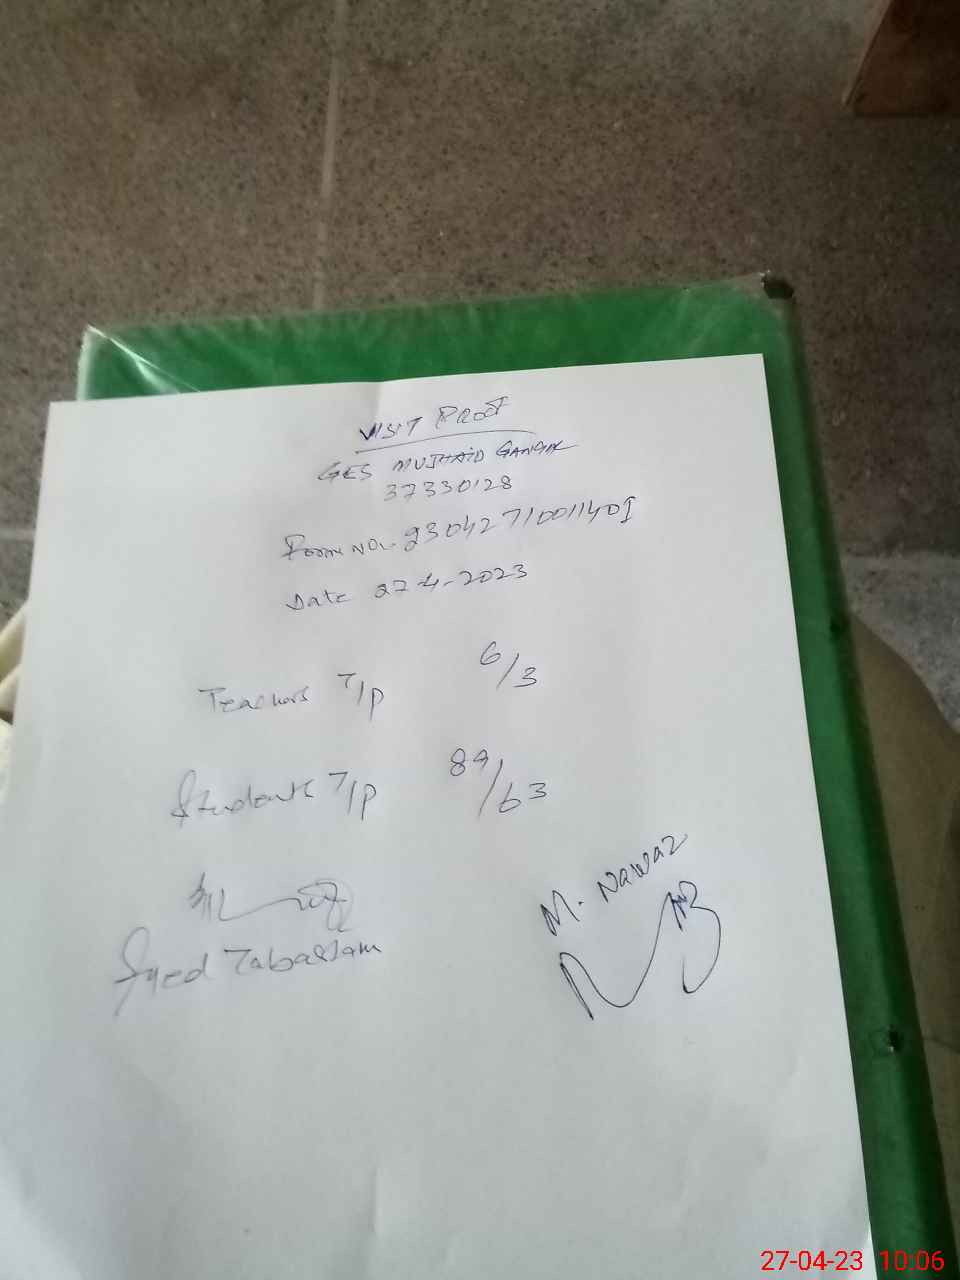 VISIT PROOF
GES MUJHAID
37330128
Form No:- 23042710011401
Date 27-4-2023
Teachers T/P 6/3
Students T/P 89/63
M. Nawaz
Syed Tabassam
27-04-23 10:06